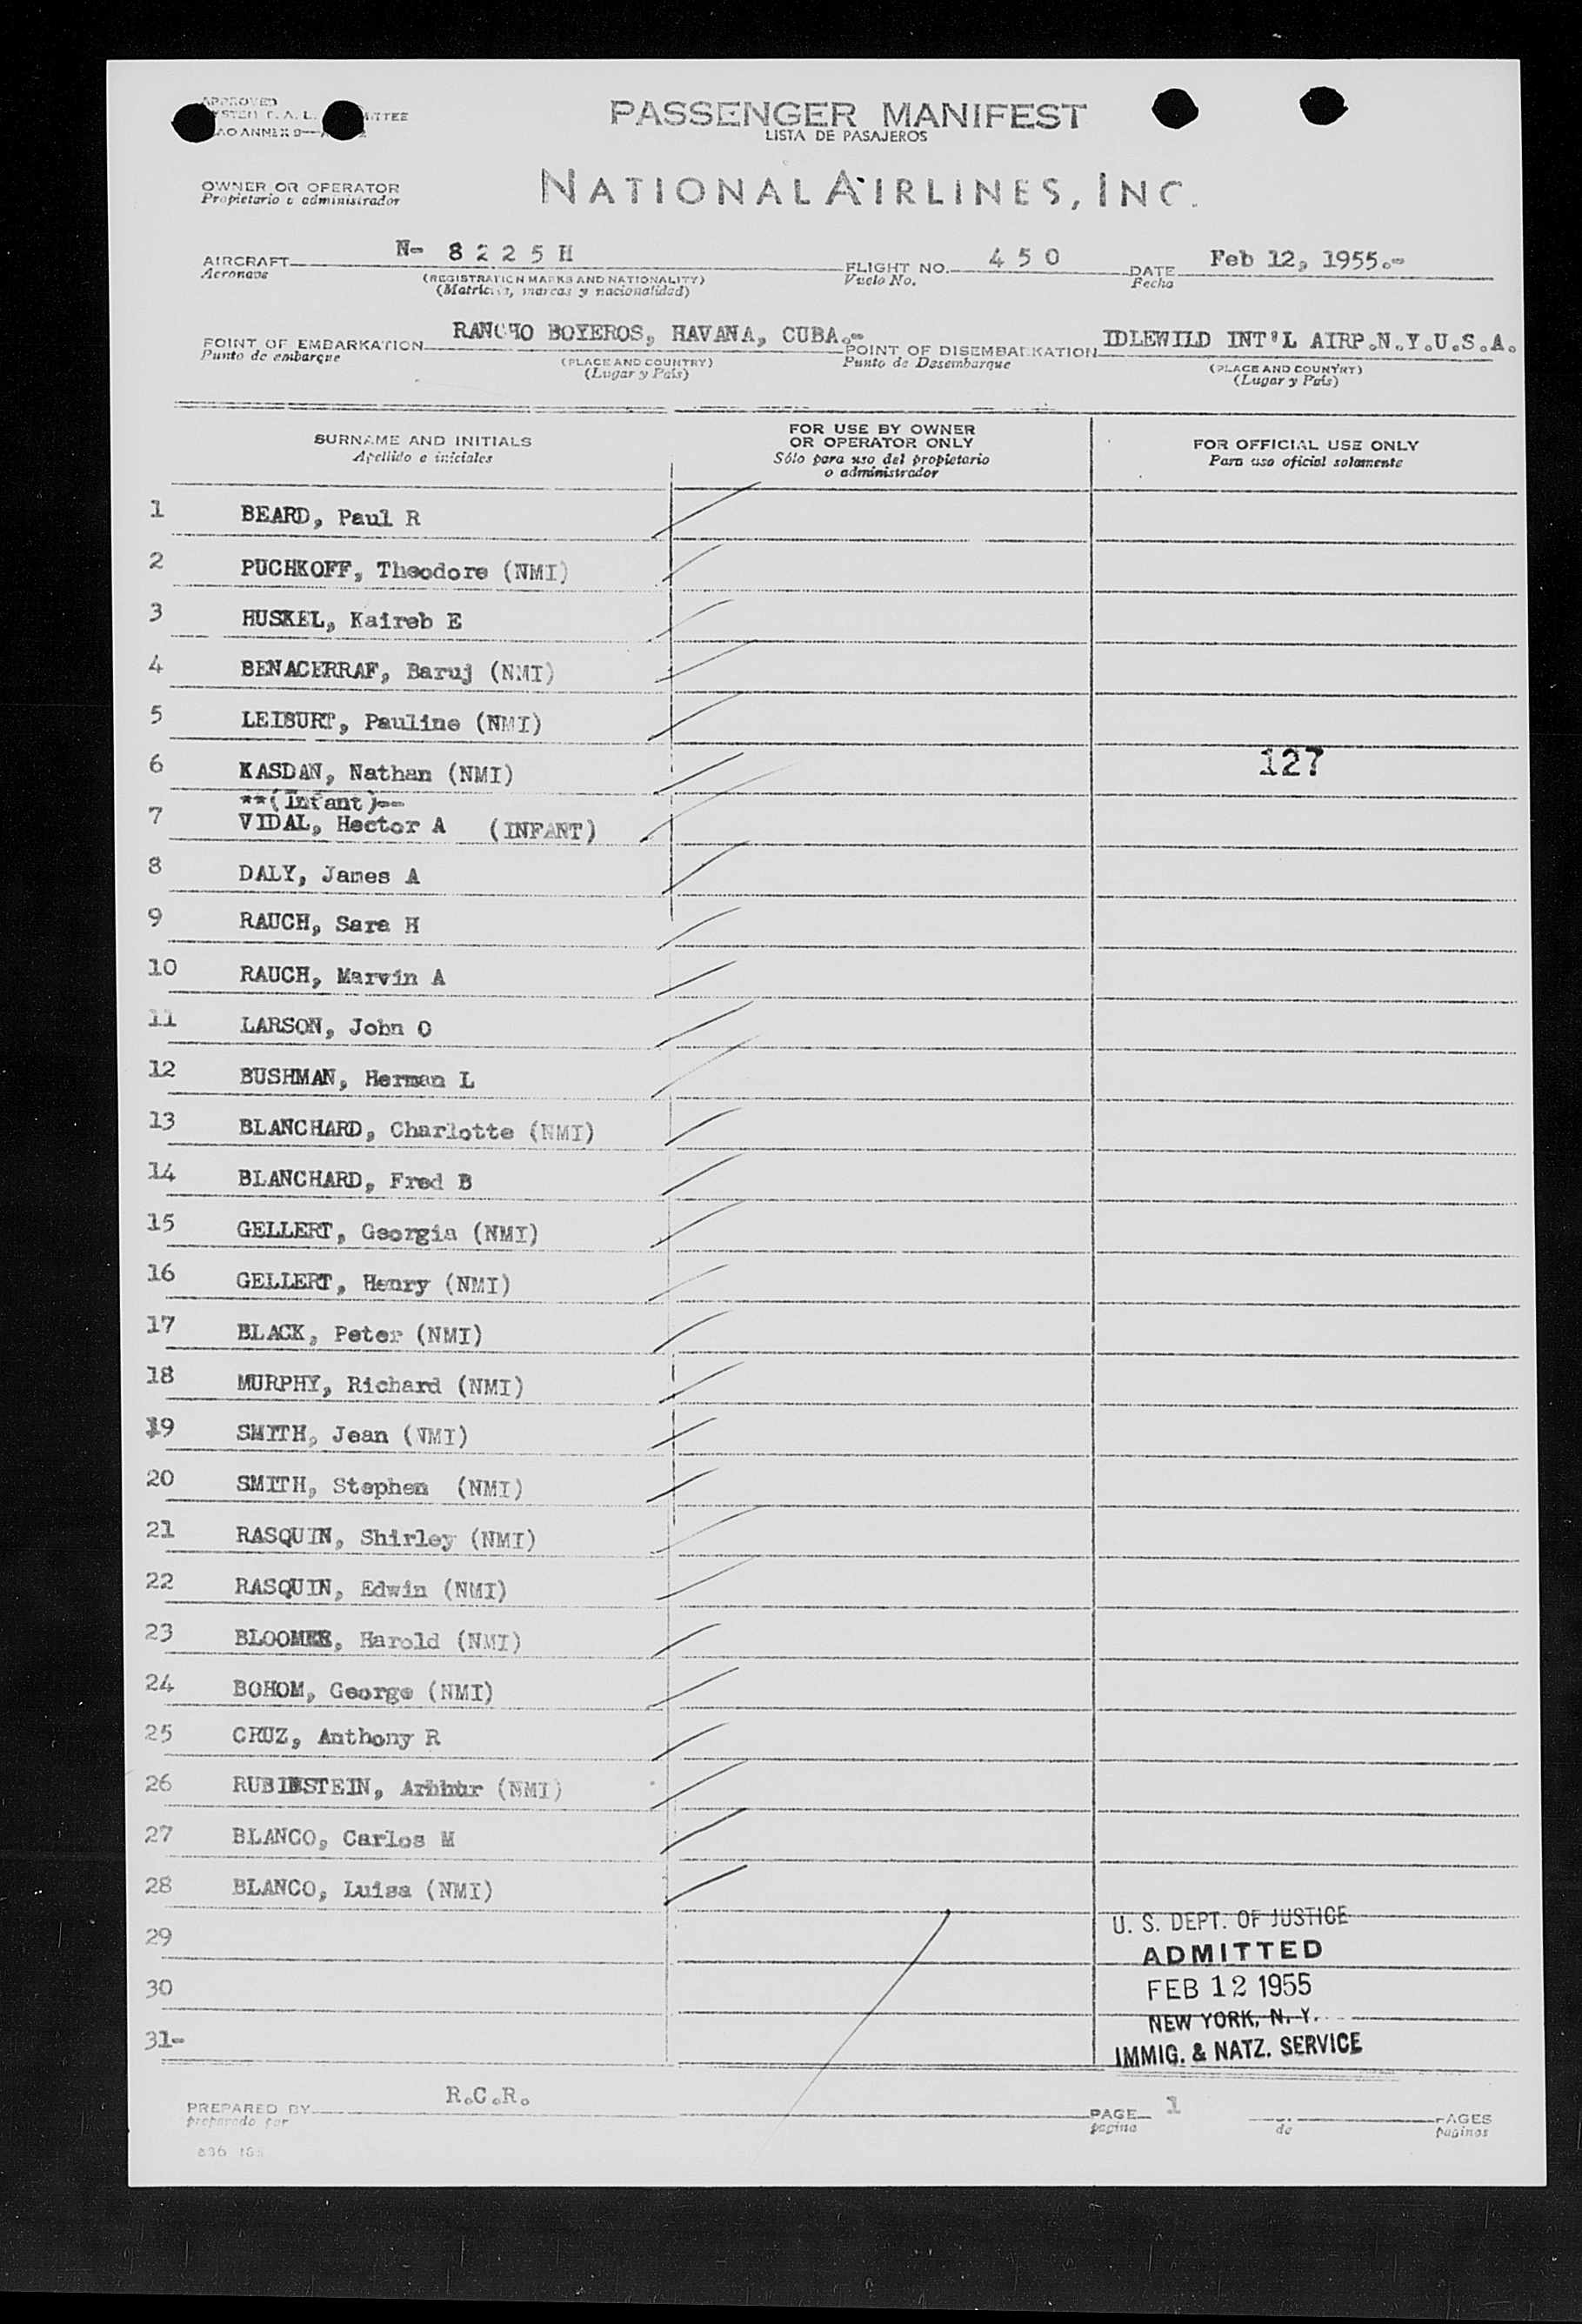 APPROVED
PASSENGER MANIFEST
LISTA DE PASAJEROS
OWNER OR OPERATOR
Propietario o administrador
NATIONAL AIRLINES, INC.
AIRCRAFT N- 8 2 2 5 H FLIGHT NO. 4 5 0 DATE Feb 12, 1955.-
Aeronave (REGISTRATION MARKS AND NATIONALITY) Vuelo No. Fecha
(Matrículas, marcas y nacionalidad)
POINT OF EMBARKATION RANCHO BOYEROS, HAVANA, CUBA.- POINT OF DISEMBARKATION IDLEWILD INT'L AIRP.N.Y.U.S.A.
Punto de embarque (PLACE AND COUNTRY) Punto de Desembarque (PLACE AND COUNTRY)
(Lugar y País) (Lugar y País)
SURNAME AND INITIALS
Apellido e iniciales
FOR USE BY OWNER
OR OPERATOR ONLY
Sólo para uso del propietario
o administrador
FOR OFFICIAL USE ONLY
Para uso oficial solamente
1 BEARD, Paul R
2 PUCHKOFF, Theodore (NMI)
3 HUSKEL, Kaireb E
4 BENACERRAF, Baruj (NMI)
5 LEISURT, Pauline (NMI)
6 KASDAN, Nathan (NMI) 127
**(Infant)--
7 VIDAL, Hector A (INFANT)
8 DALY, James A
9 RAUCH, Sara H
10 RAUCH, Marvin A
11 LARSON, John O
12 BUSHMAN, Herman L
13 BLANCHARD, Charlotte (NMI)
14 BLANCHARD, Fred B
15 GELLERT, Georgia (NMI)
16 GELLERT, Henry (NMI)
17 BLACK, Peter (NMI)
18 MURPHY, Richard (NMI)
19 SMITH, Jean (NMI)
20 SMITH, Stephen (NMI)
21 RASQUIN, Shirley (NMI)
22 RASQUIN, Edwin (NMI)
23 Harold (NMI)
24 BOHOM, George (NMI)
25 CRUZ, Anthony R
26 (NMI)
27 BLANCO, Carlos M
28 BLANCO, Luisa (NMI)
29
30
31-
U. S. DEPT. OF JUSTICE
ADMITTED
FEB 12 1955
NEW YORK, N. Y.
IMMIG. & NATZ. SERVICE
PREPARED BY R.C.R. PAGE 1 PAGES
preparado por pagina de paginas